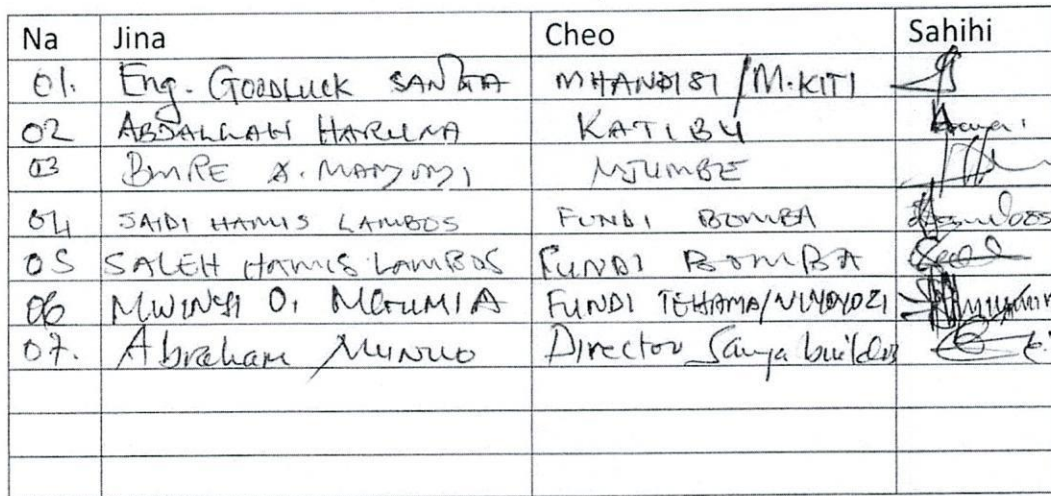 Na Jina Cheo Sahihi
01. Eng. GOODLUCK SANGA MHANDISI/M.KITI
02 ABDALLAH HARUNA KATIBU
03 MJUMBE
04 SAIDI HAMIS LAMBOS FUNDI BOMBA
05 SALEH HAMIS LAMBOS FUNDI BOMBA
06 MWINYI O. FUNDI TEHAMA/
07. Abraham Munuo Director Sanya builders